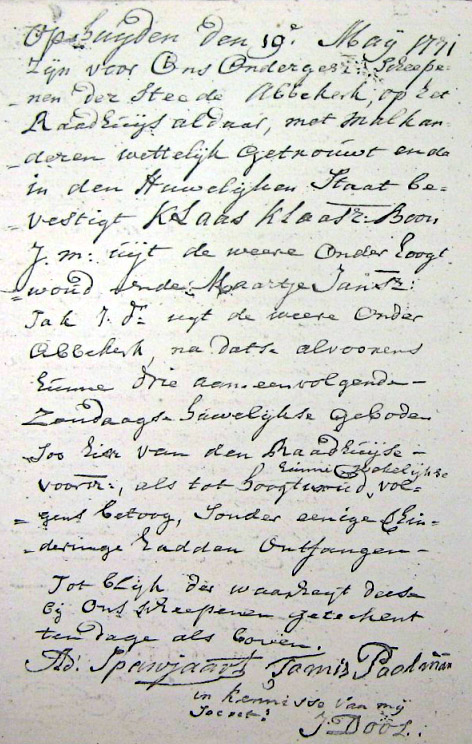 Op huyden den 19e Maÿ 1771
Zijn voor Ons Ondergesz: Scheepe-
nen der Steede Abbekerk, op het
Raadhuijs aldaar, met Malkan-
deren wettelijk Getrouwt ende
in den Huwelijken Staat be-
vestigt Klaas Klaasz: Boon
J. m: uijt de weere onder Hoogt
woud ende Maartje Jansz:
Jak J. d: uyt de weere onder
Abbekerk, na datse alvoorens
hunne drie aan eenvolgende
Zondaagse huwelijkse Geboden
Soo hier van den Raadhuijse
voorsz:, als tot Hoogtwoud, vol-
hunne Kerkelijke
gens betoog, Sonder eenige Hin-
deringe hadden Ontfangen
Tot blijk der waarheyt deese
bij Ons Scheepenen getekent
ten dage als boven.
Ad: Spanjaart Tamis Paolman
in kennisse van mij
Secret: J: Dool: